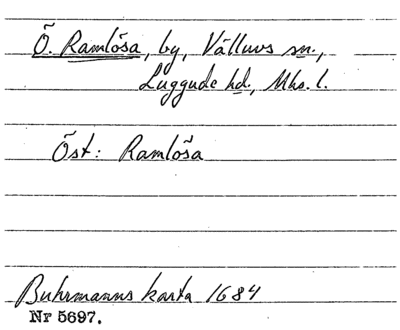 Ö. Ramlösa, by, Välluvs sn.,
Luggude hd., Mhs. l.
Öst: Ramlösa
Buhrmanns karta 1684
Nr 5697.